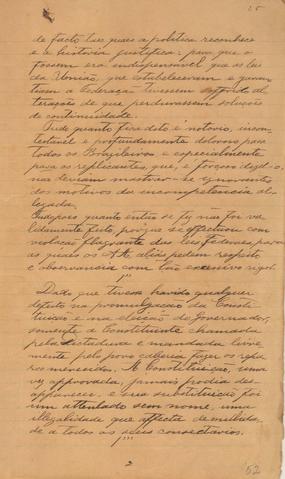 25
de facto taes quaes a politica reconhece
e a historia justifica; para que o
fossem era indispensavel que as leis
da União, que estabeleceram e garan-
tiam a Federação tivessem soffrido al-
terações de que perdurassem soluções
de continuidade.
Tudo quanto fica dito é notorio, incon-
testavel e profundamente doloroso para
todos os Brazileiros e especialmente
para os supplicantes, que, é forçoso dizel-o
nao deviam mostrar-se ignorantes
dos motivos da incompetencia al-
legada.
E depois quanto então se fez não foi va-
lidamente feito, porque se effectuou com
violação flagrante das leis federaes, para
as quais os AA. aliás pedem respeito
e observancia com tão excessivo rigor.
Dado que tivesse havido qualquer
defeito na promulgação da Consti-
tuição e na eleição do Governador,
somente a Constituinte chamada
pela dictadura e mandada livre
mente pelo povo caberia fazer os repa-
ros merecidos. A Constituição, uma
vez approvada, jamais podia des-
apparecer, e sua substituição foi
um attentado sem nome, uma
illegalidade que affecta de nullida-
de a todos os seus consectarios.
2
52